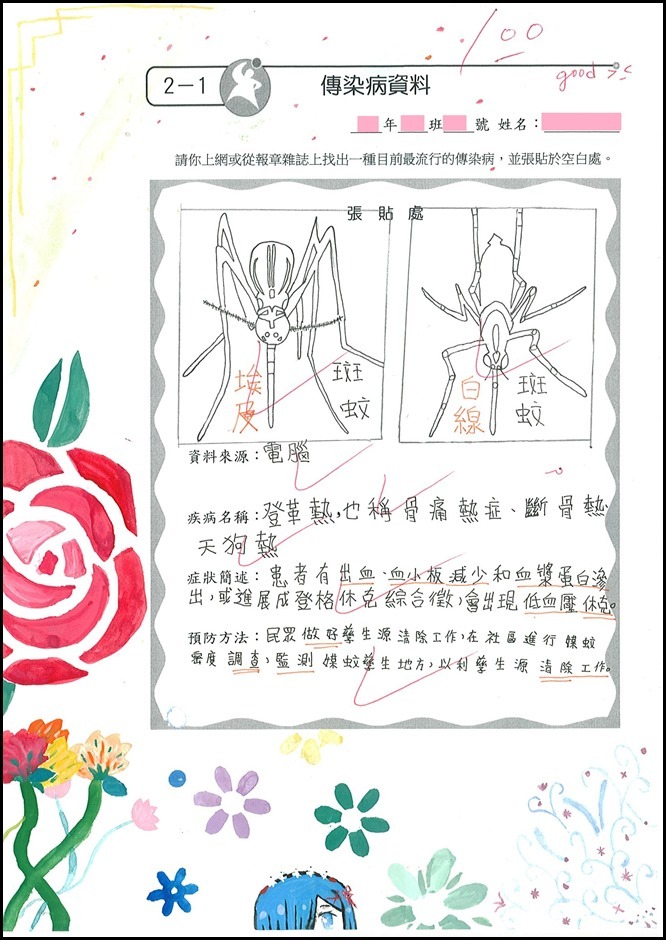 100
good
2-1
傳染病資料
年 班 號 姓名：
請你上網或從報章雜誌上找出一種目前最流行的傳染病，並張貼於空白處。
張貼處
埃及 斑蚊
白線 斑蚊
資料來源：電腦
疾病名稱：登革熱，也稱骨痛熱症、斷骨熱
天狗熱
症狀簡述：患者有出血、血小板減少和血漿蛋白滲
出，或進展成登格休克綜合徵，會出現低血壓休克。
預防方法：民眾做好孳生源清除工作，在社區進行媒蚊
密度調查，監測媒蚊孳生地方，以利孳生源清除工作。